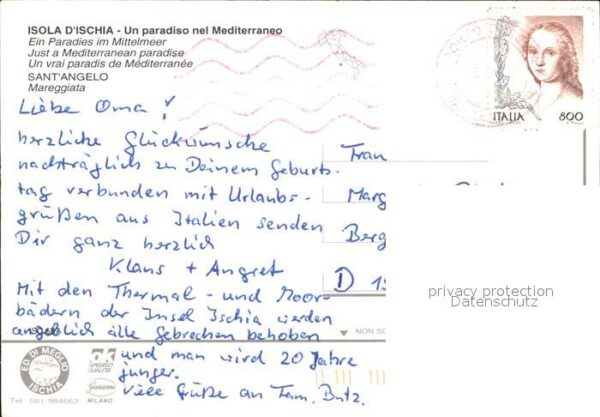 ISOLA D'ISCHIA - Un paradiso nel Mediterraneo
Ein Paradies im Mittelmeer
Just a Mediterranean paradise
Un vrai paradis de Méditerranée
SANT'ANGELO
Mareggiata
ITALIA 800
Liebe Oma!
herzliche Glückwünsche
nachträglich zu Deinem Geburts-
tag verbunden mit Urlaubs-
grüßen aus Italien senden
Dir ganz herzlich
Klaus + Angret
Mit den Thermal- und Moor-
bädern der Insel Ischia werden
angeblich alle Gebrechen behoben
und man wird 20 Jahre
junger.
viele Grüße an Fam. Butz.
Frau
Marg
Berg
D
privacy protection
Datenschutz
NON SC
ED DI MEGLIO
ISCHIA
Tel. 081-984663
MILANO